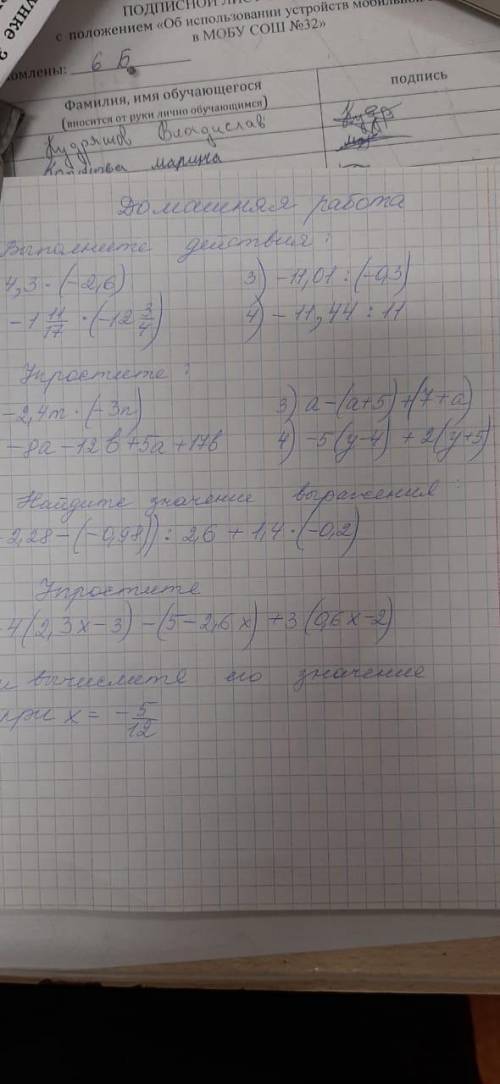 ПОДПИСНОЙ ЛИС
с положением «Об использовании устройств мобильной
в МОБУ СОШ №32»
омлены: 6 Б
Фамилия, имя обучающегося
(вносится от руки лично обучающимся)
подпись
Кудряшов Владислав
марина
Домашняя работа
Выполните действия:
4,3 · (-2,6) 3) -11,01 : (-0,3)
-1 11/17 · (-12 3/4) 4) -11,44 : 11
Упростите:
-2,4m · (-3n) 3) a-(a+5)+(7+a)
-8a-12b+5a+17b 4) -5(y-4)+2(y+5)
Найдите значение выражения:
2,28-(-0,98)) : 2,6 + 1,4 · (-0,2)
Упростите
4(2,3x-3)-(5-2,6x)+3(0,6x-2)
и вычислите его значение
при x = -5/12